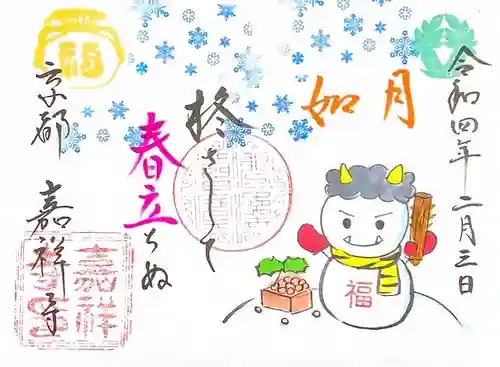 令和四年二月三日
如月
柊さして
春立ちぬ
京都 嘉祥寺
福
嘉祥